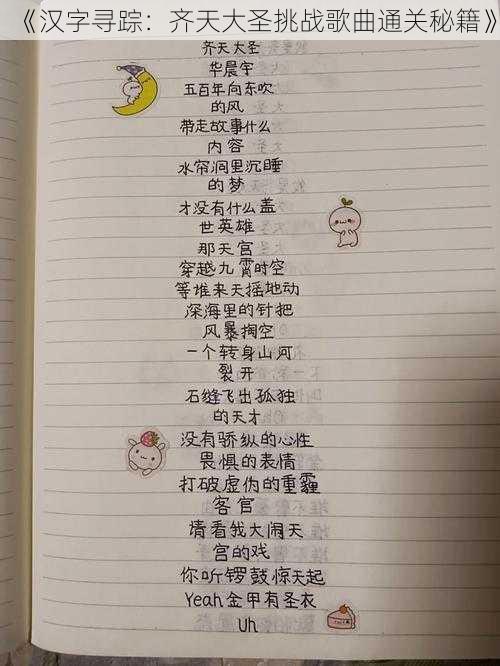 《汉字寻踪：齐天大圣挑战歌曲通关秘籍》
齐天大圣
华晨宇
五百年向东吹
的风
带走故事什么
内容
水帘洞里沉睡
的梦
才没有什么盖
世英雄
那天宫
穿越九霄时空
等谁来天摇地动
深海里的针把
风暴掏空
一个转身山河
裂开
石缝飞出孤独
的天才
没有骄纵的心性
畏惧的表情
打破虚伪的重霾
客官
请看我大闹天
宫的戏
你听锣鼓惊天起
Yeah金甲有圣衣
uh